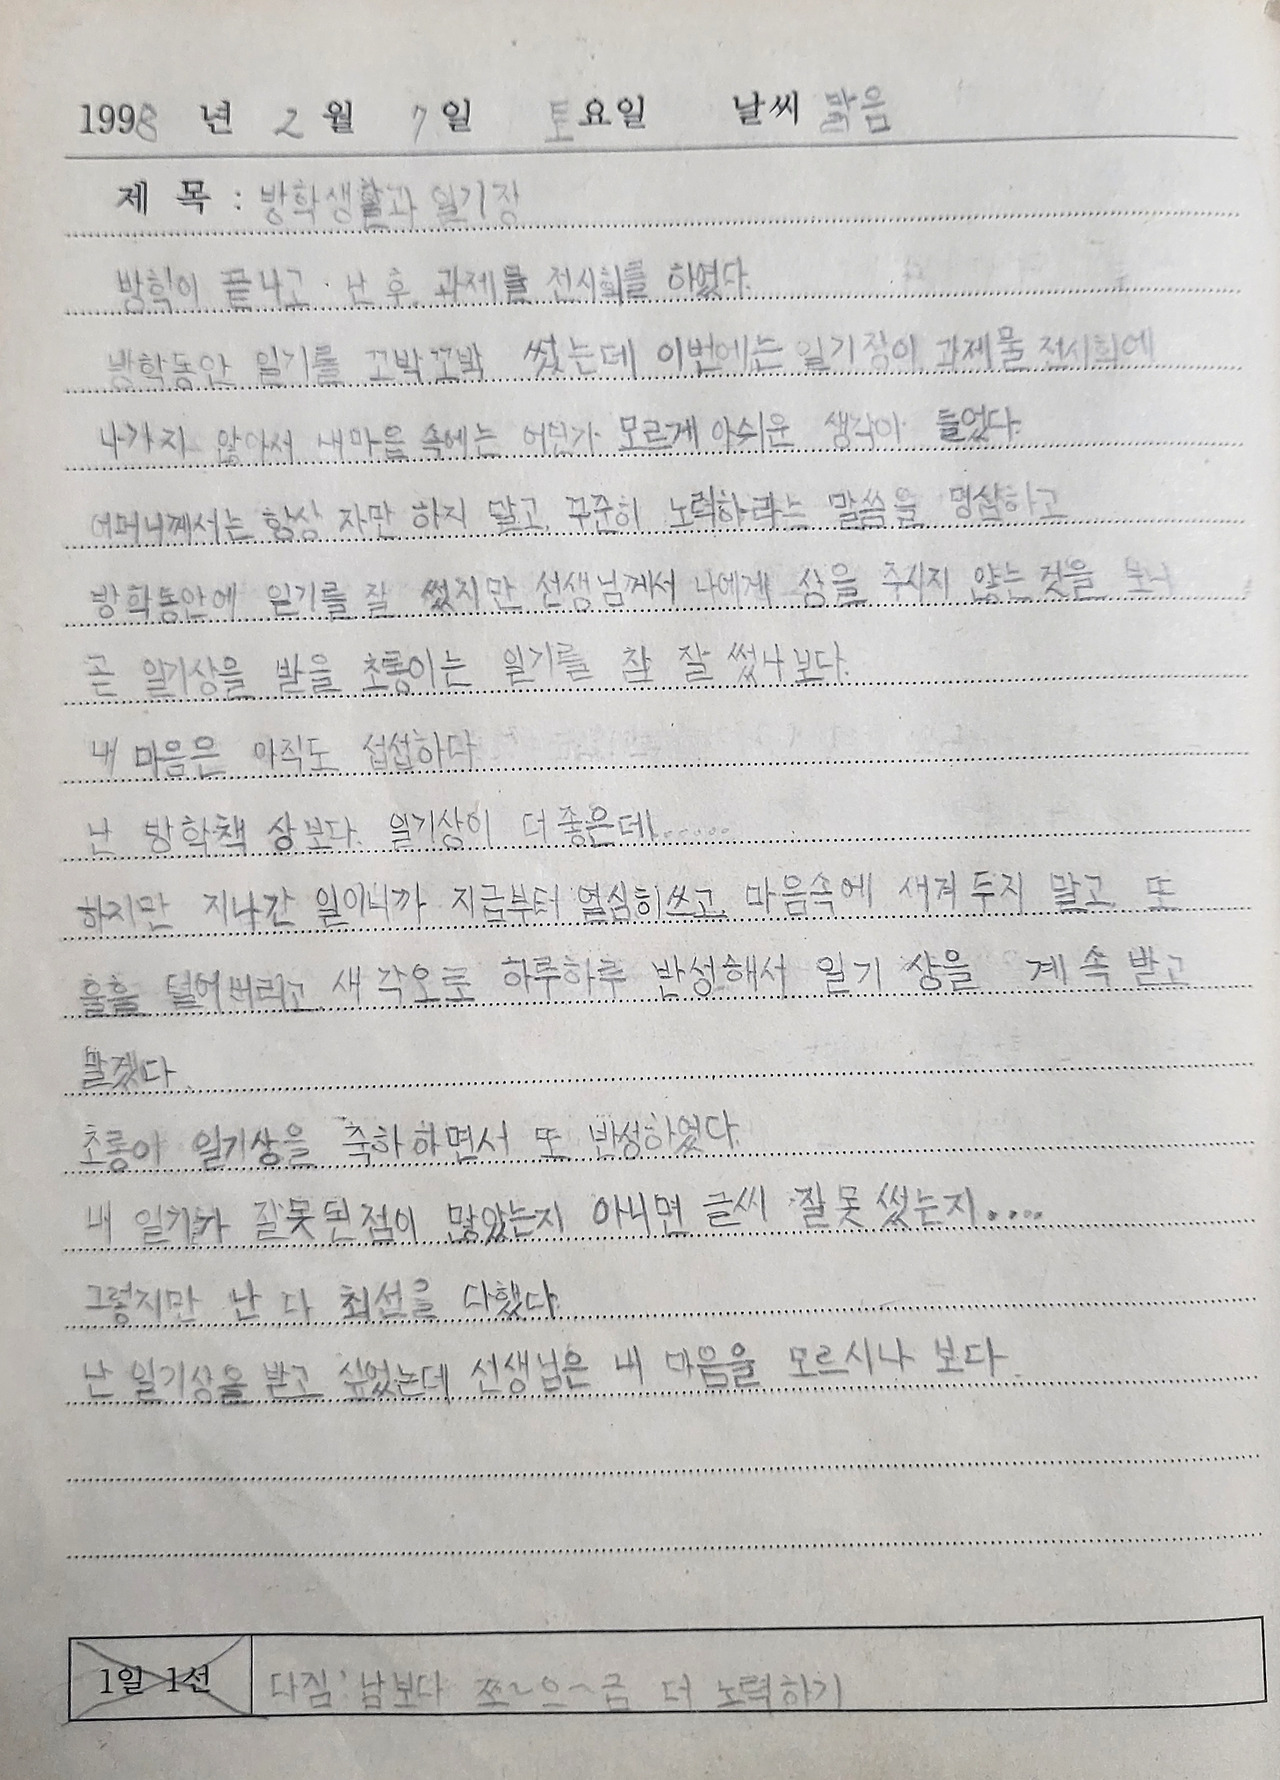 1998 년 2 월 7 일 토요일 날씨 맑음
제 목 : 방학생활과 일기장
방학이 끝나고 난 후. 과제물 전시회를 하였다.
방학동안 일기를 꼬박꼬박 썼는데 이번에는 일기장이 과제물 전시회에
나가지 않아서 내마음 속에는 어딘가 모르게 아쉬운 생각이 들었다.
어머니께서는 항상 자만 하지 말고, 꾸준히 노력하라는 말씀을 명심하고
방학동안에 일기를 잘 썼지만 선생님께서 나에게 상을 주시지 않는 것을 보니
곧 일기상을 받을 초롱이는 일기를 참 잘 썼나보다.
내 마음은 아직도 섭섭하다
난 방학책 상보다. 일기상이 더 좋은데.......
하지만 지나간 일이니까 지금부터 열심히쓰고, 마음속에 새겨 두지 말고, 또
훌훌 털어버리고, 새 각오로 하루하루 반성해서 일기 상을 계속 받고
말겠다.
초롱이 일기상을 축하하면서 또 반성하였다.
내 일기가 잘못된점이 많았는지 아니면 글씨 잘못 썼는지....
그렇지만 난 다 최선을 다했다.
난 일기상을 받고 싶었는데 선생님은 내 마음을 모르시나 보다.
1일 1선 다짐: 남보다 쪼~으~금 더 노력하기